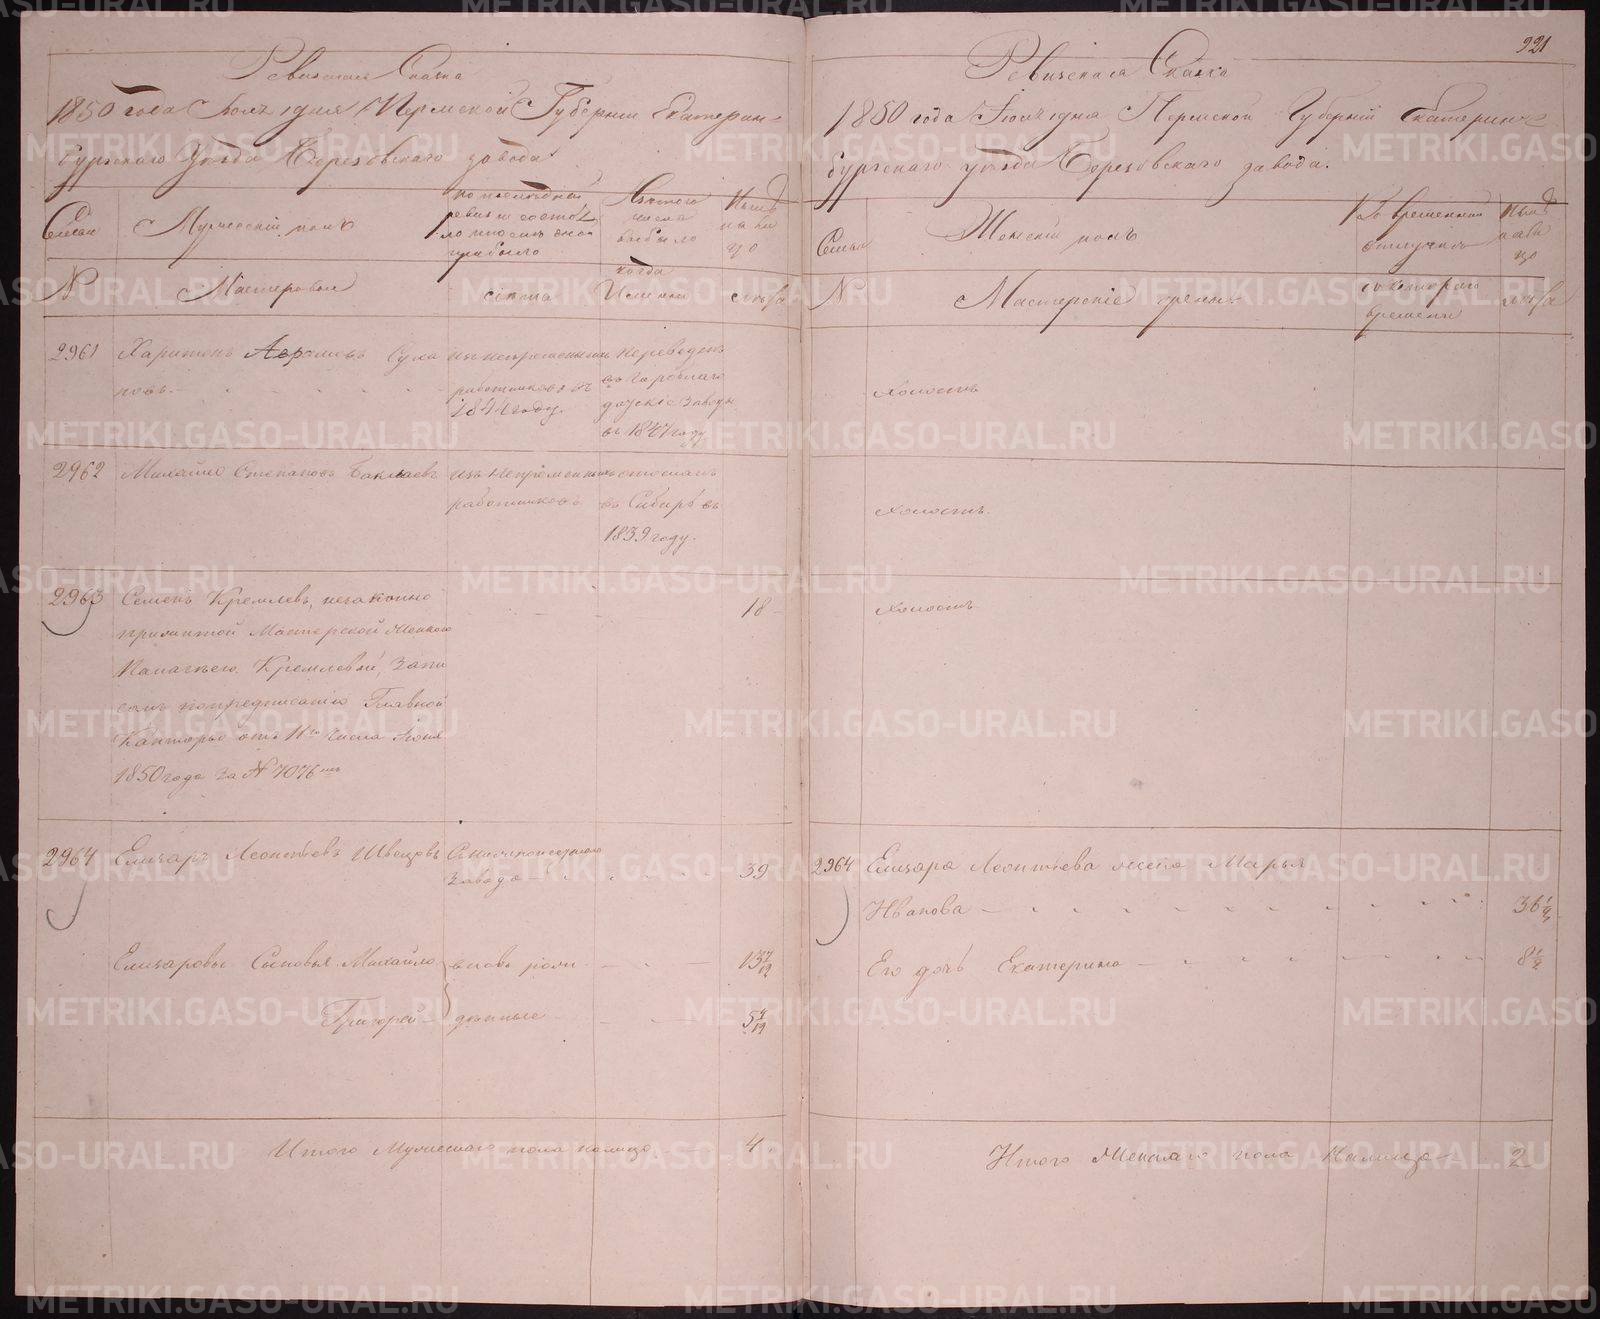 921
Ревизская Сказка
1850 года Июля 1 дня Пермской Губернии Екатерин=
бургскаго уѣзда Березовскаго завода.
Семьи
Мужескій полъ
по последней
ревизіи состоя
ло и после оной
прибыло
Изъ того
числа
выбыло
Нынѣ
на ли
цо
№
Мастеровыя
когда
Именно
лѣта
2961 Харитонъ Аврамовъ Суха
новъ.
изъ непременныхъ
работниковъ въ
1844 году.
переведенъ
въ Гороблаго
датскіе заводы
въ 1847 году
2962 Михайло Степановъ Баклаевъ
изъ непременныхъ
работниковъ
отосланъ
въ Сибирь въ
1839 году.
2963 Семенъ Кремлевъ, незаконно
прижитой Мастерской Женкою
Кремлевой, запи
санъ по предписанію Главной
Канторы отъ 16го числа Іюня
1850 года за № 7076мъ
18
2964 Елизаръ Леонтьевъ Швецовъ
завода
39
Елизаровы Сыновья Михайло
Григорей
вновь рож
денные
13 7/12
5 7/12
Итого Мужескаго пола налицо 4.
Ревизская Сказка
1850 года Іюля 1 дня Пермской Губерніи Екатерин=
бургскаго уѣзда Березовскаго завода.
Семьи
Женскій полъ
Во временной
отлучкѣ
Нынѣ
нали
цо
№
Мастерскіе женки
съ котораго
времени
лѣта
Холостъ
Холостъ.
Холостъ
2964 Елизара Леонтьева жена Марья
Иванова 36 1/2
Его дочь Екатерина 8 1/2
Итого Женскаго пола Налицо 2
METRIKI.GASO-URAL.RU